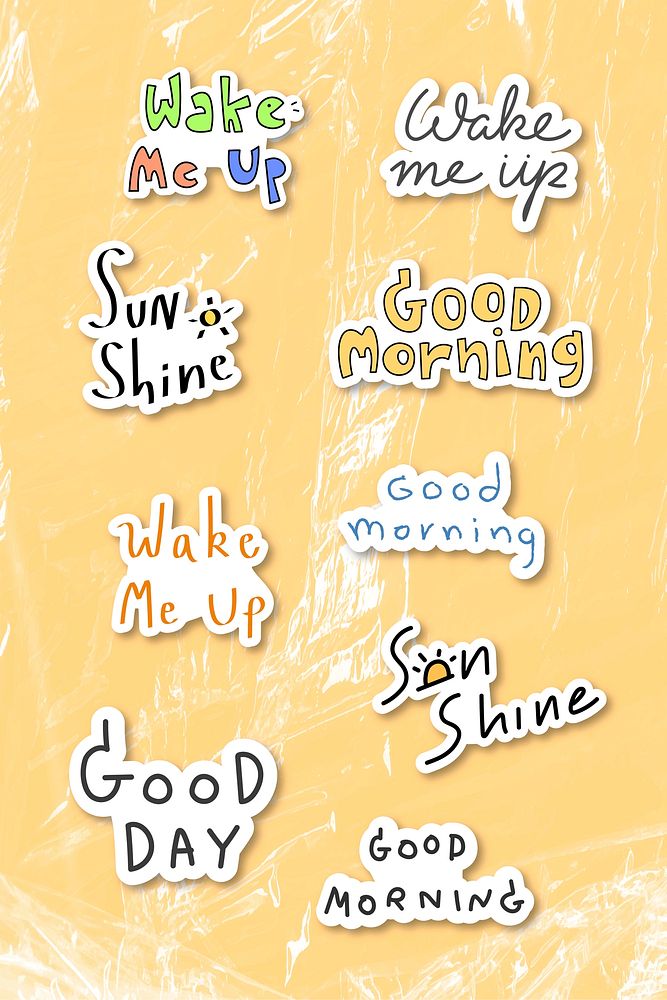 Wake
Me Up
Wake
me up
Sun
Shine
GOOD
Morning
Wake
Me Up
Good
morning
Sun
Shine
GOOD
DAY
GOOD
MORNING